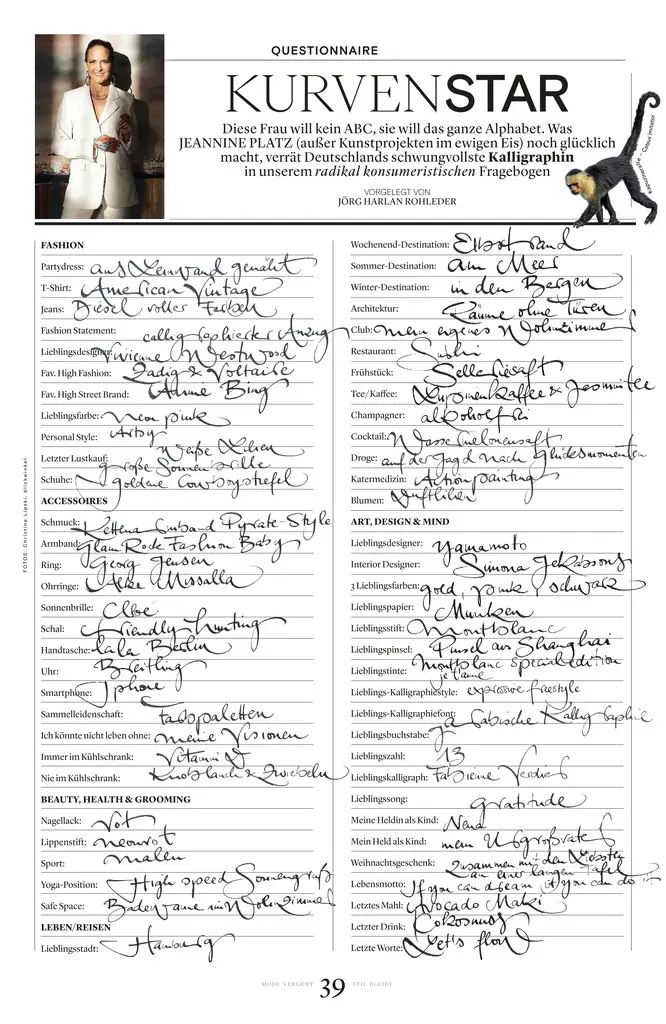 QUESTIONNAIRE
KURVENSTAR
Diese Frau will kein ABC, sie will das ganze Alphabet. Was
JEANNINE PLATZ (außer Kunstprojekten im ewigen Eis) noch glücklich
macht, verrät Deutschlands schwungvollste Kalligraphin
in unserem radikal konsumeristischen Fragebogen
VORGELEGT VON
JÖRG HARLAN ROHLEDER
Kapuzineraffe – Cebus imitator
FOTOS: Christine Lipski, blickwinkel
FASHION
Partydress: aus Leinwand genäht
T-Shirt: American Vintage
Jeans: Diesel voller Farben
Fashion Statement: calligraphierter Anzug
Lieblingsdesigner: Vivienne Westwood
Fav. High Fashion: Zadig & Voltaire
Fav. High Street Brand: Anine Bing
Lieblingsfarbe: Neon pink
Personal Style: Artsy
Letzter Lustkauf: Weiße Lilien
große Sonnenbrille
Schuhe: goldene Cowboystiefel
ACCESSOIRES
Schmuck: Pyrate-Style
Armband: Glam Rock Fashion Baby
Ring: Georg Jensen
Ohrringe: Missalla
Sonnenbrille: Cloe
Schal: Friendly Hunting
Handtasche: Lala Berlin
Uhr: Breitling
Smartphone: Iphone
Sammelleidenschaft: Farbpaletten
Ich könnte nicht leben ohne: meine Visionen
Immer im Kühlschrank: Vitamin
Nie im Kühlschrank: Knoblauch & Zwiebeln
BEAUTY, HEALTH & GROOMING
Nagellack: rot
Lippenstift: neonrot
Sport: malen
Yoga-Position: High speed Sonnengruß
Safe Space: Badewanne im Wohnzimmer
LEBEN/REISEN
Lieblingsstadt: Hamburg
Wochenend-Destination: Elbstrand
Sommer-Destination: am Meer
Winter-Destination: in den Bergen
Architektur: Räume ohne Türen
Club: mein eigenes Wohnzimmer
Restaurant: Sushi
Frühstück: Selleriesaft
Tee/Kaffee: Lupinenkaffee & Jasmintee
Champagner: alkoholfrei
Cocktail: Wassermelonensaft
Droge: auf der Jagd nach Glücksmomenten
Katermedizin: Actionpainting
Blumen: Duftlilien
ART, DESIGN & MIND
Lieblingsdesigner: Yamamoto
Interior Designer: Simona
3 Lieblingsfarben: gold, pink, schwarz
Lieblingspapier: Munken
Lieblingsstift: Montblanc
Lieblingspinsel: Pinsel aus Shanghai
Lieblingstinte: Montblanc special edition
je t'aime
Lieblings-Kalligraphiestyle: expressive freestyle
Lieblings-Kalligraphiefont: arabische Kalligraphie
Lieblingsbuchstabe:
Lieblingszahl: 13
Lieblingskalligraph: Fabienne Verdier
Lieblingssong: gratitude
Meine Heldin als Kind: Nena
Mein Held als Kind: mein Urgroßvater
Weihnachtsgeschenk: Zusammen mit den Liebsten
an einer langen Tafel
Lebensmotto: If you can dream it you can do it
Letztes Mahl: Avocado Maki
Letzter Drink: Kokosnuss
Letzte Worte: Let's flow
MODE VERGEHT 39 STIL BLEIBT